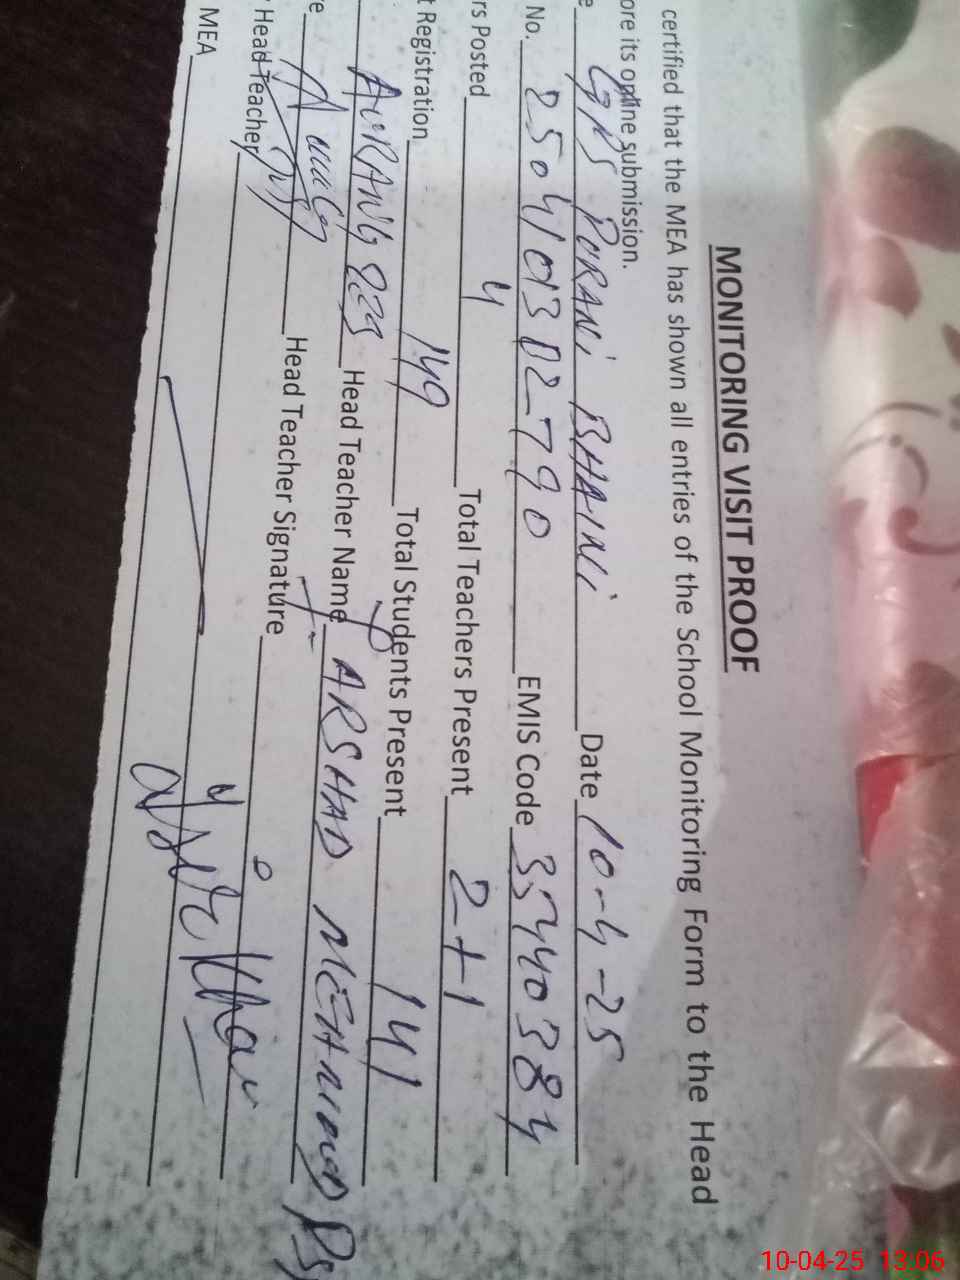 MONITORING VISIT PROOF
certified that the MEA has shown all entries of the School Monitoring Form to the Head
ore its online submission.
e GPS PURANI BHAINI Date 10-4-25
No. 2504101302790 EMIS Code 35440384
rs Posted 4 Total Teachers Present 2+1
t Registration 149 Total Students Present 141
AURANGZEB Head Teacher Name ARSHAD MEHMOOD
re Head Teacher Signature
Head Teacher
MEA
10-04-25 13:06